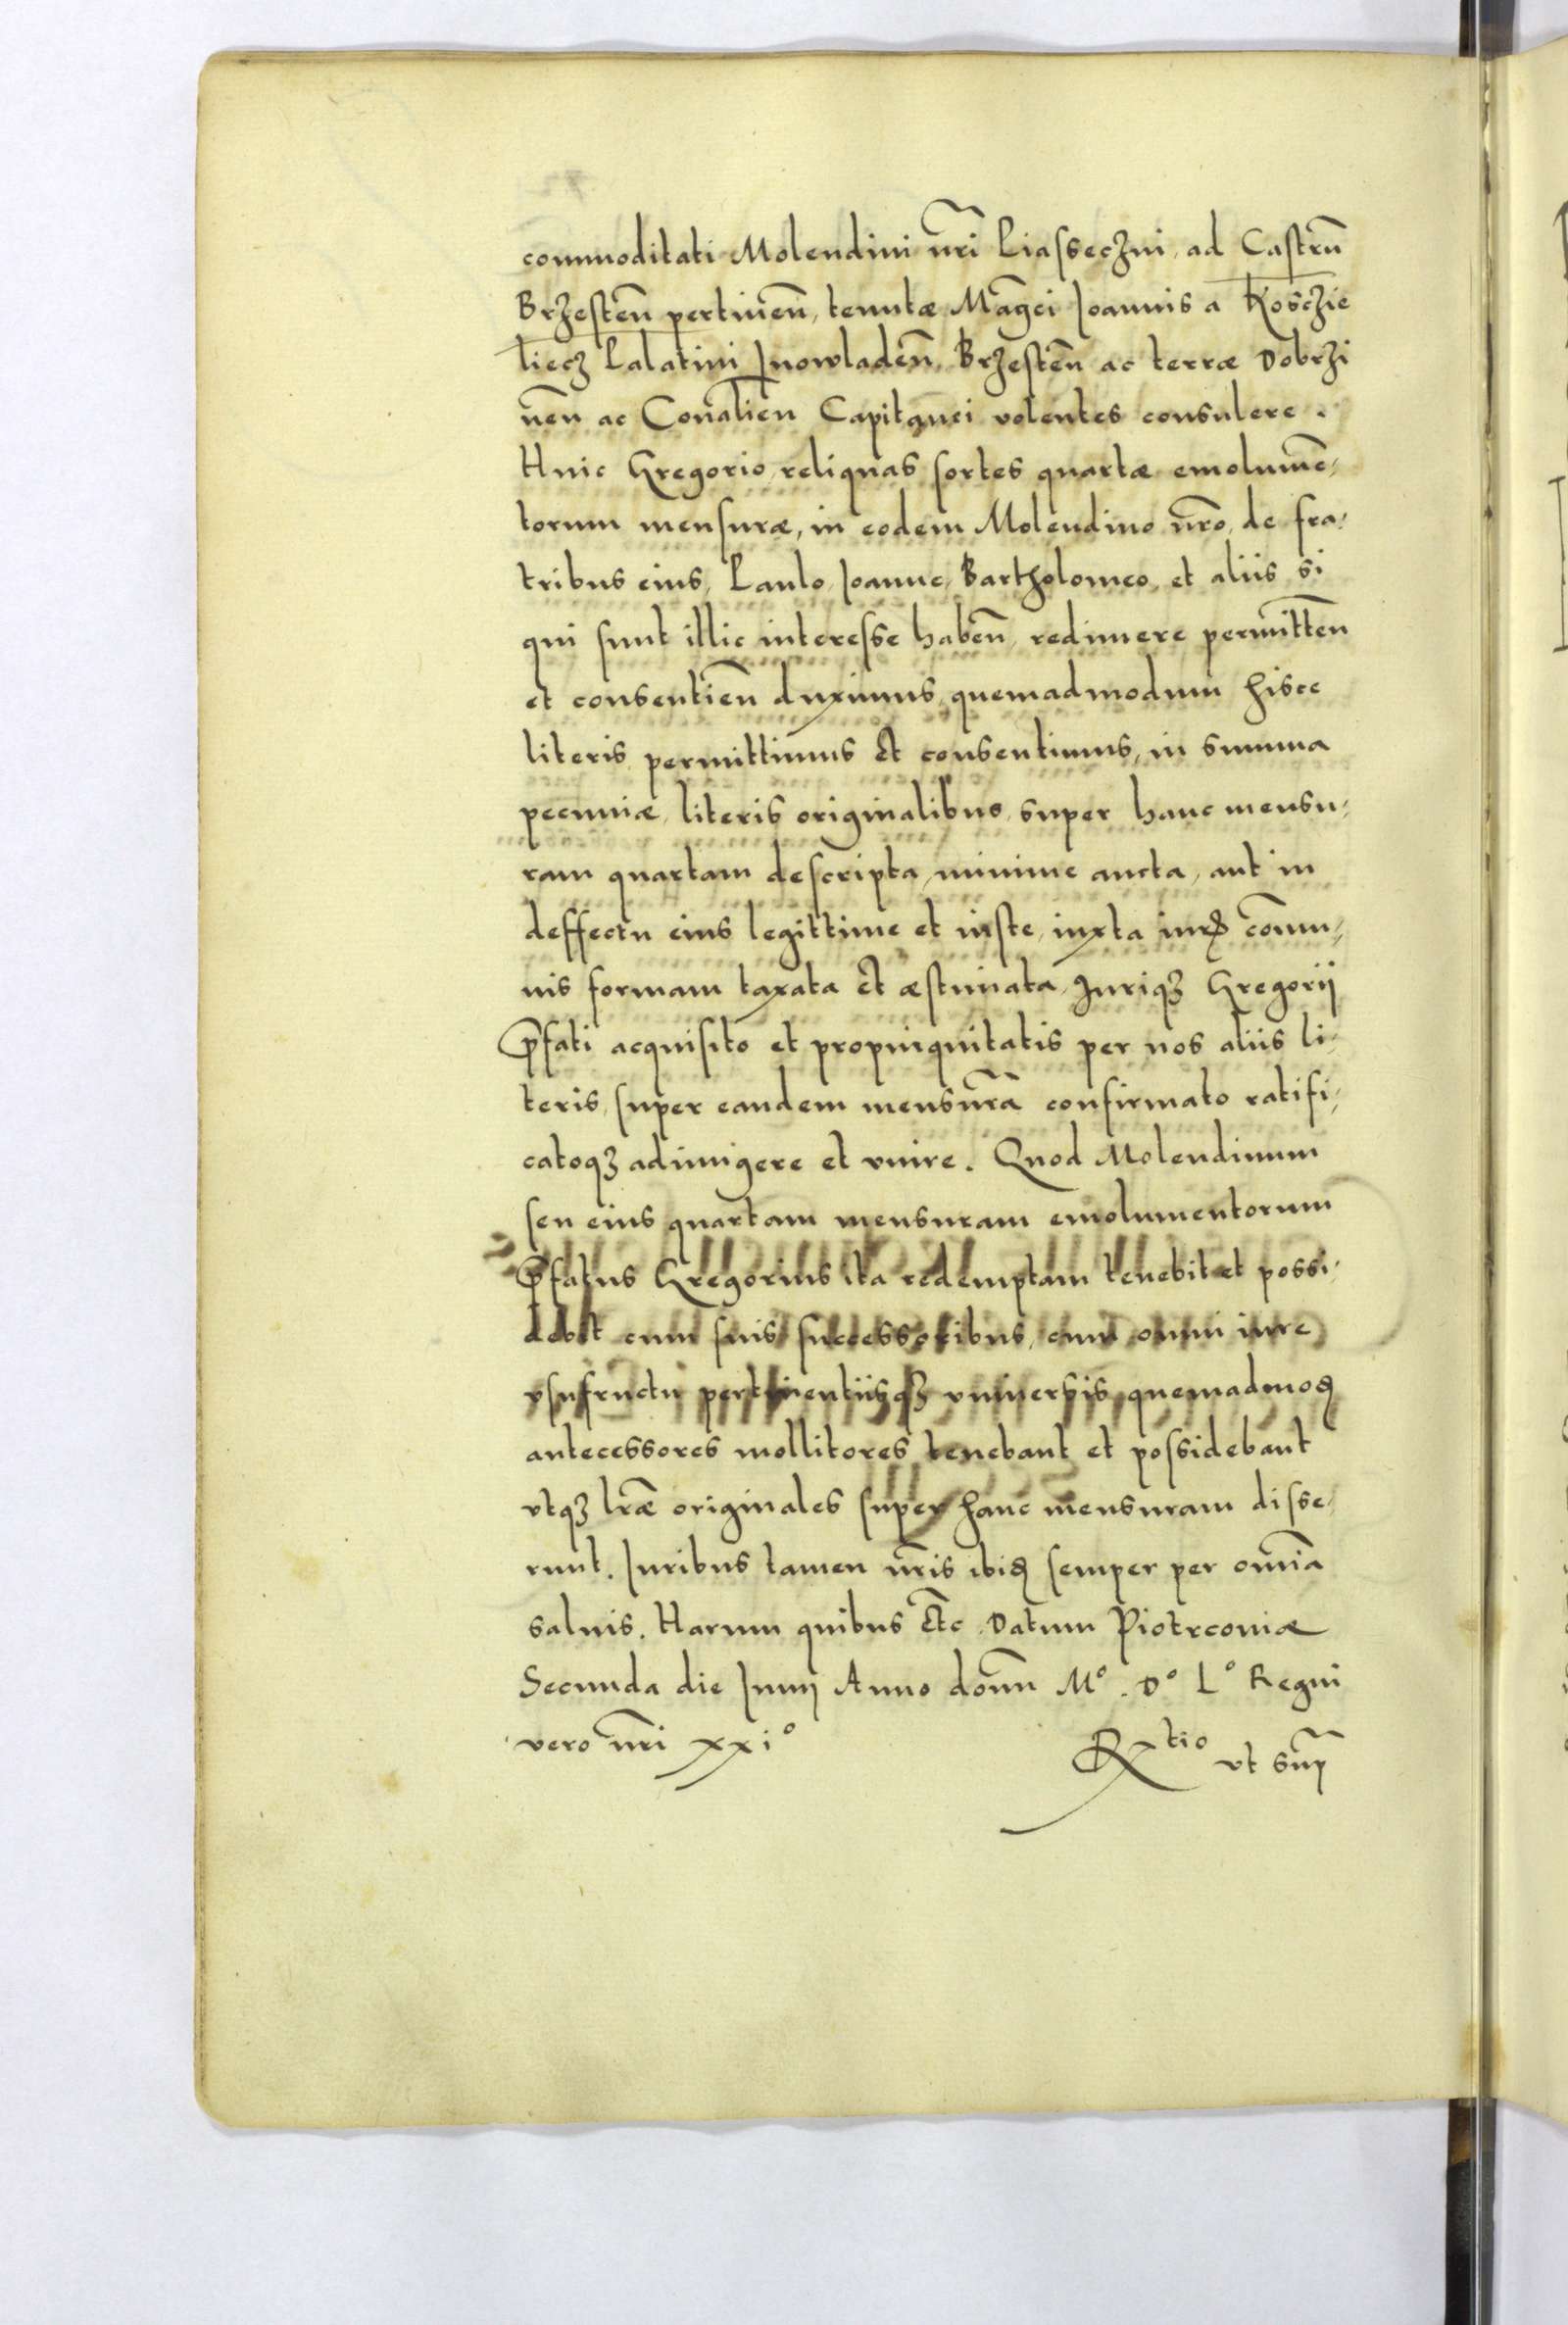 commoditati Molendini nr̃i Liasseczni, ad Castrũ
Brzesteñ pertineñ, tenutæ Mãgci Joannis a Kosczie
liecz Palatini Jnowladeñ, Brzesteñ ac terræ Dobrzi
neñ ac Conalieñ Capitanei volentes consulere.
Huic Gregorio reliquas sortes quartæ emolumẽ,
torum mensuræ, in eodem Molendino nr̃o, de fra,
tribus eius, Paulo Joanne, Bartholomeo, et aliis si
qui sunt illic interesse habeñ, redimere permitteñ
et consentieñ duximus, quemadmodum hisce
literis permittimus et consentimus, in summa
pecuniæ, literis originalibus, super hanc mensu,
ram quartam descripta, minime aucta, aut in
deffectu eius legittime et iuste, iuxta iurꝭ com̃u,
nis formam taxata et æstimata, Juriqꝫ Gregorij
p̃fati acquisito et propinquitatis per nos aliis li,
teris, super eandem mensurã confirmato ratifi,
catoqꝫ adiungere et vnire. Quod Molendinum
seu eius quartam mensuram emolumentorum
p̃fatus Gregorius ita redemptam tenebit et possi,
debit cum suis successoribus, cum omni iure
vsufructu pertinentiisqꝫ vniuersis, quemadmoꝺ
antecessores mollitores tenebant et possidebant
vtqꝫ lr̃æ originales super hanc mensuram disse,
runt. Juribus tamen nr̃is ibiꝺ semper per om̃ia
saluis. Harum quibus etc̃. Datum Piotrcoviæ
Secunda die Junij Anno domñ Mº. Dº Lº Regni
vero nr̃i xxiº
Rtio vt sup̃